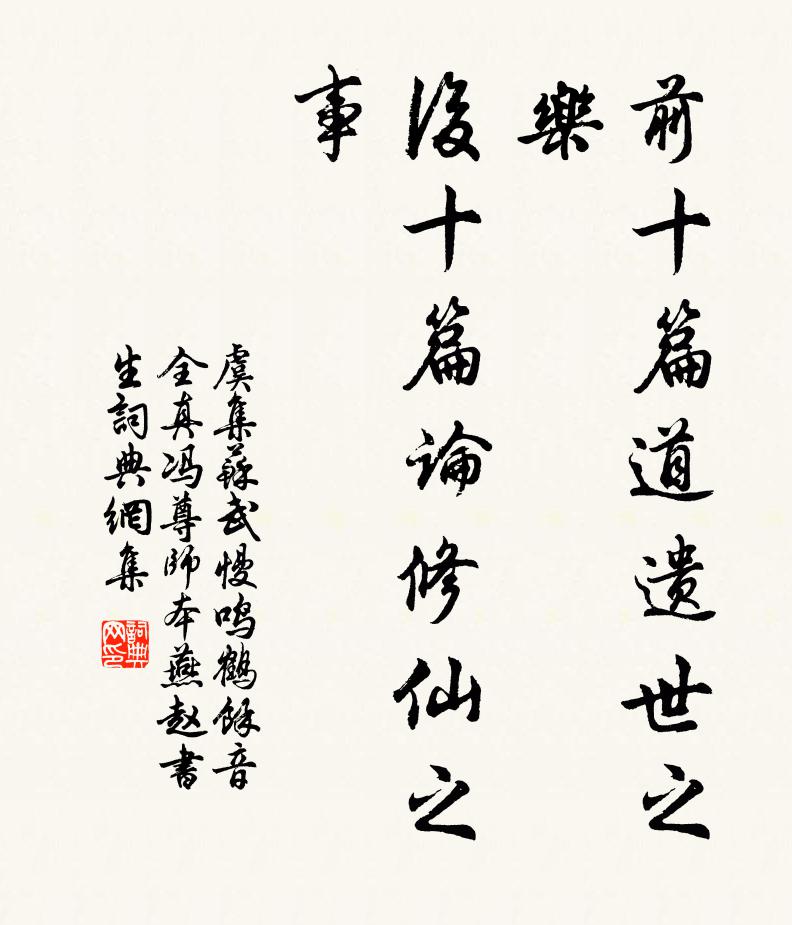 前十篇道遗世之
樂
後十篇論修仙之
事
虞集蘇武慢鸣鶴餘音
全真冯尊師本燕赵書
生詞典網集
詞典
网印